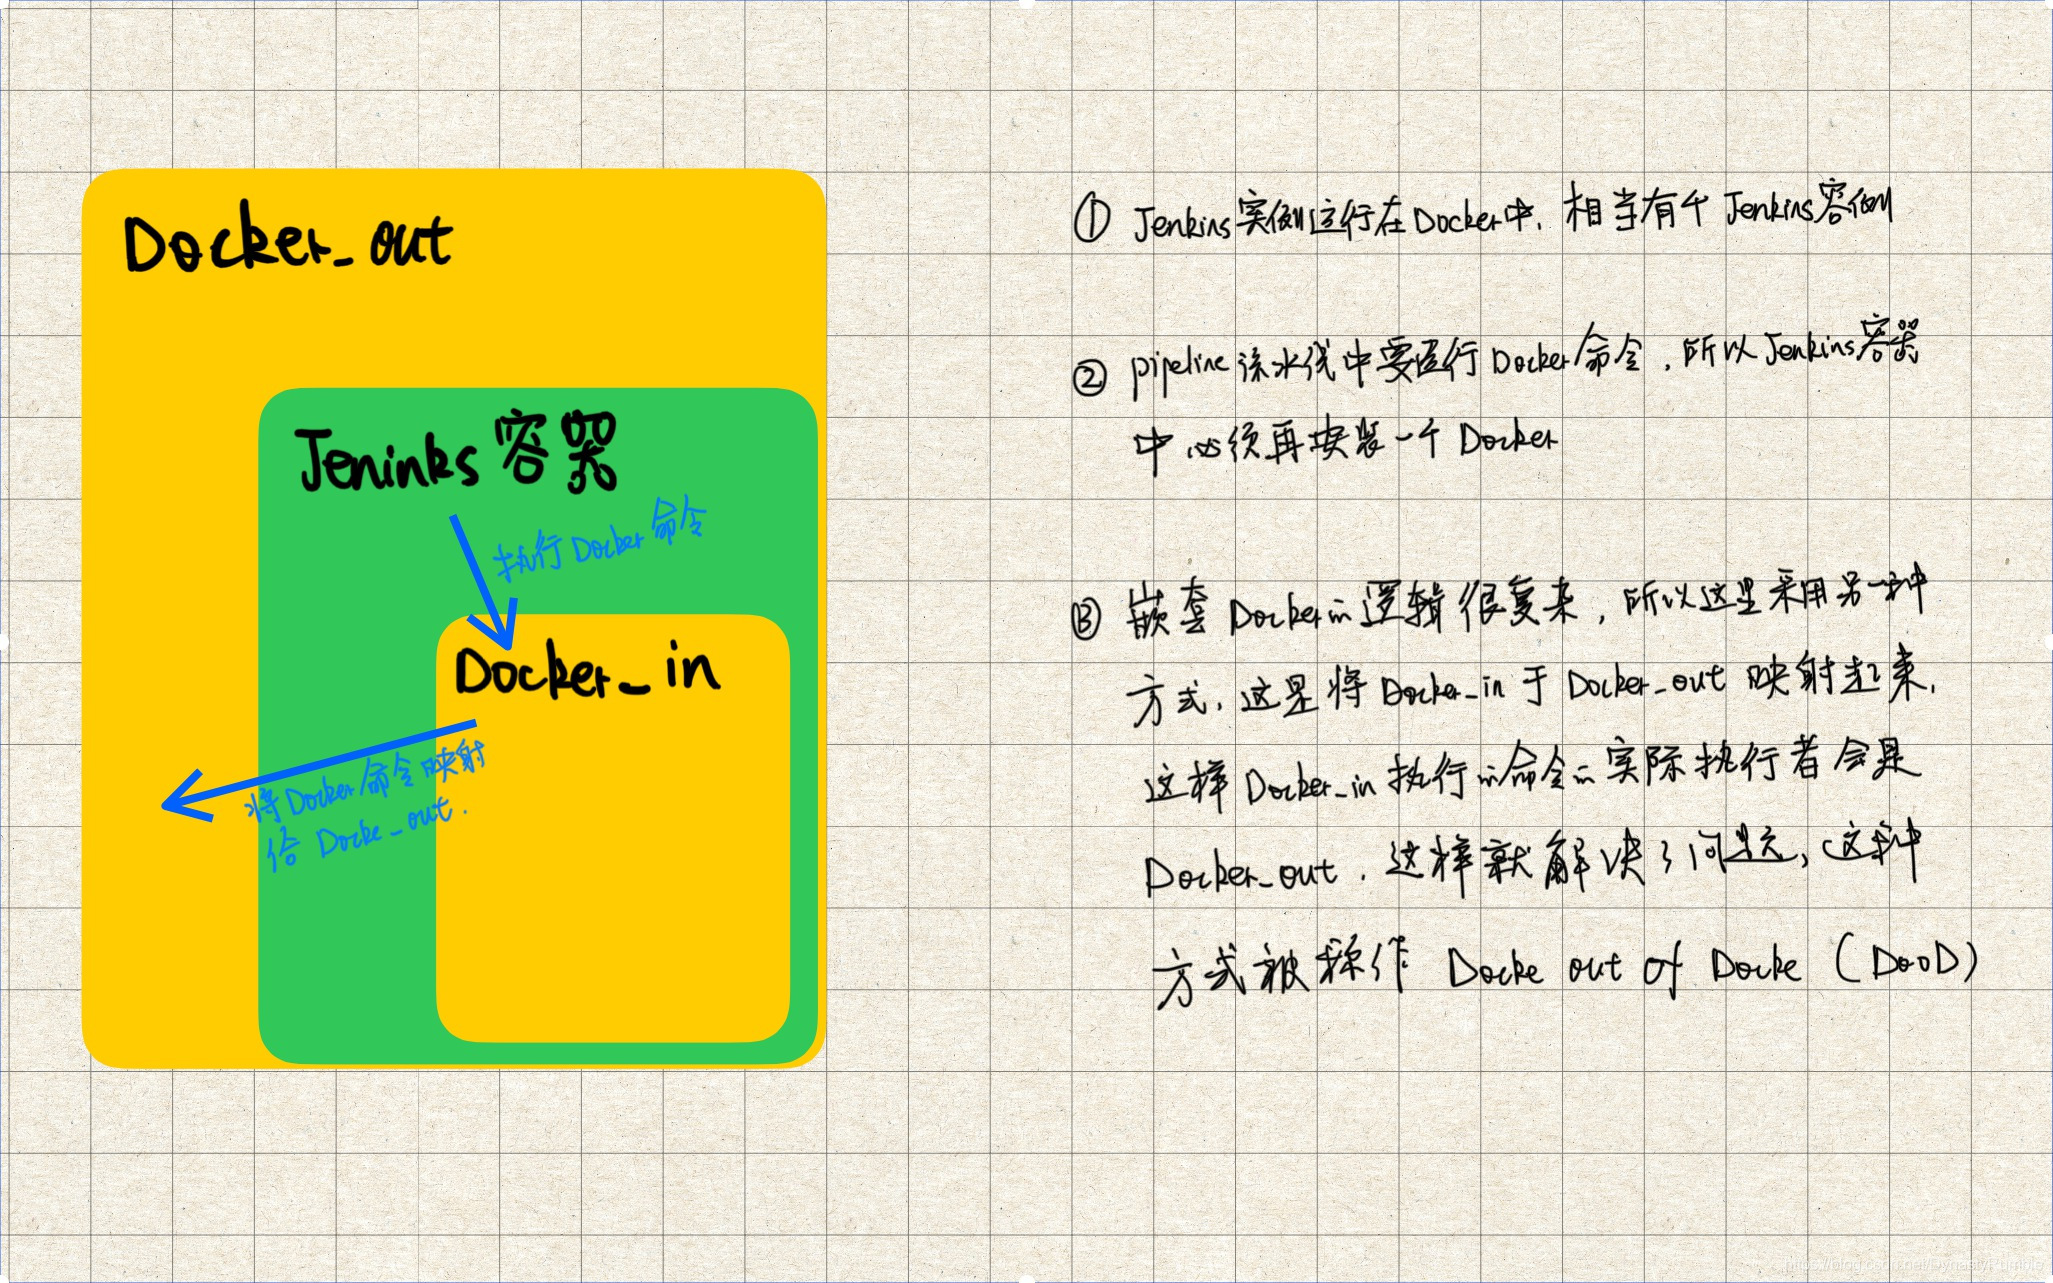 Docker_out
Jeninks 容器
执行 Docker 命令
Docker_in
将Docker命令映射
给 Docke_out.
① Jenkins实例运行在Docker中，相当有个 Jenkins容例
② pipeline 流水线中要运行 Docker命令，所以Jenkins容器
中必须再安装一个 Docker
③ 嵌套 Docker的逻辑很复杂，所以这里采用另一种
方式，这是将 Docker_in 于 Docker_out 映射起来，
这样 Docker_in 执行的命令的实际执行者会是
Docker_out，这样就解决了问题，这种
方式被称作 Docke out of Docke (DooD)